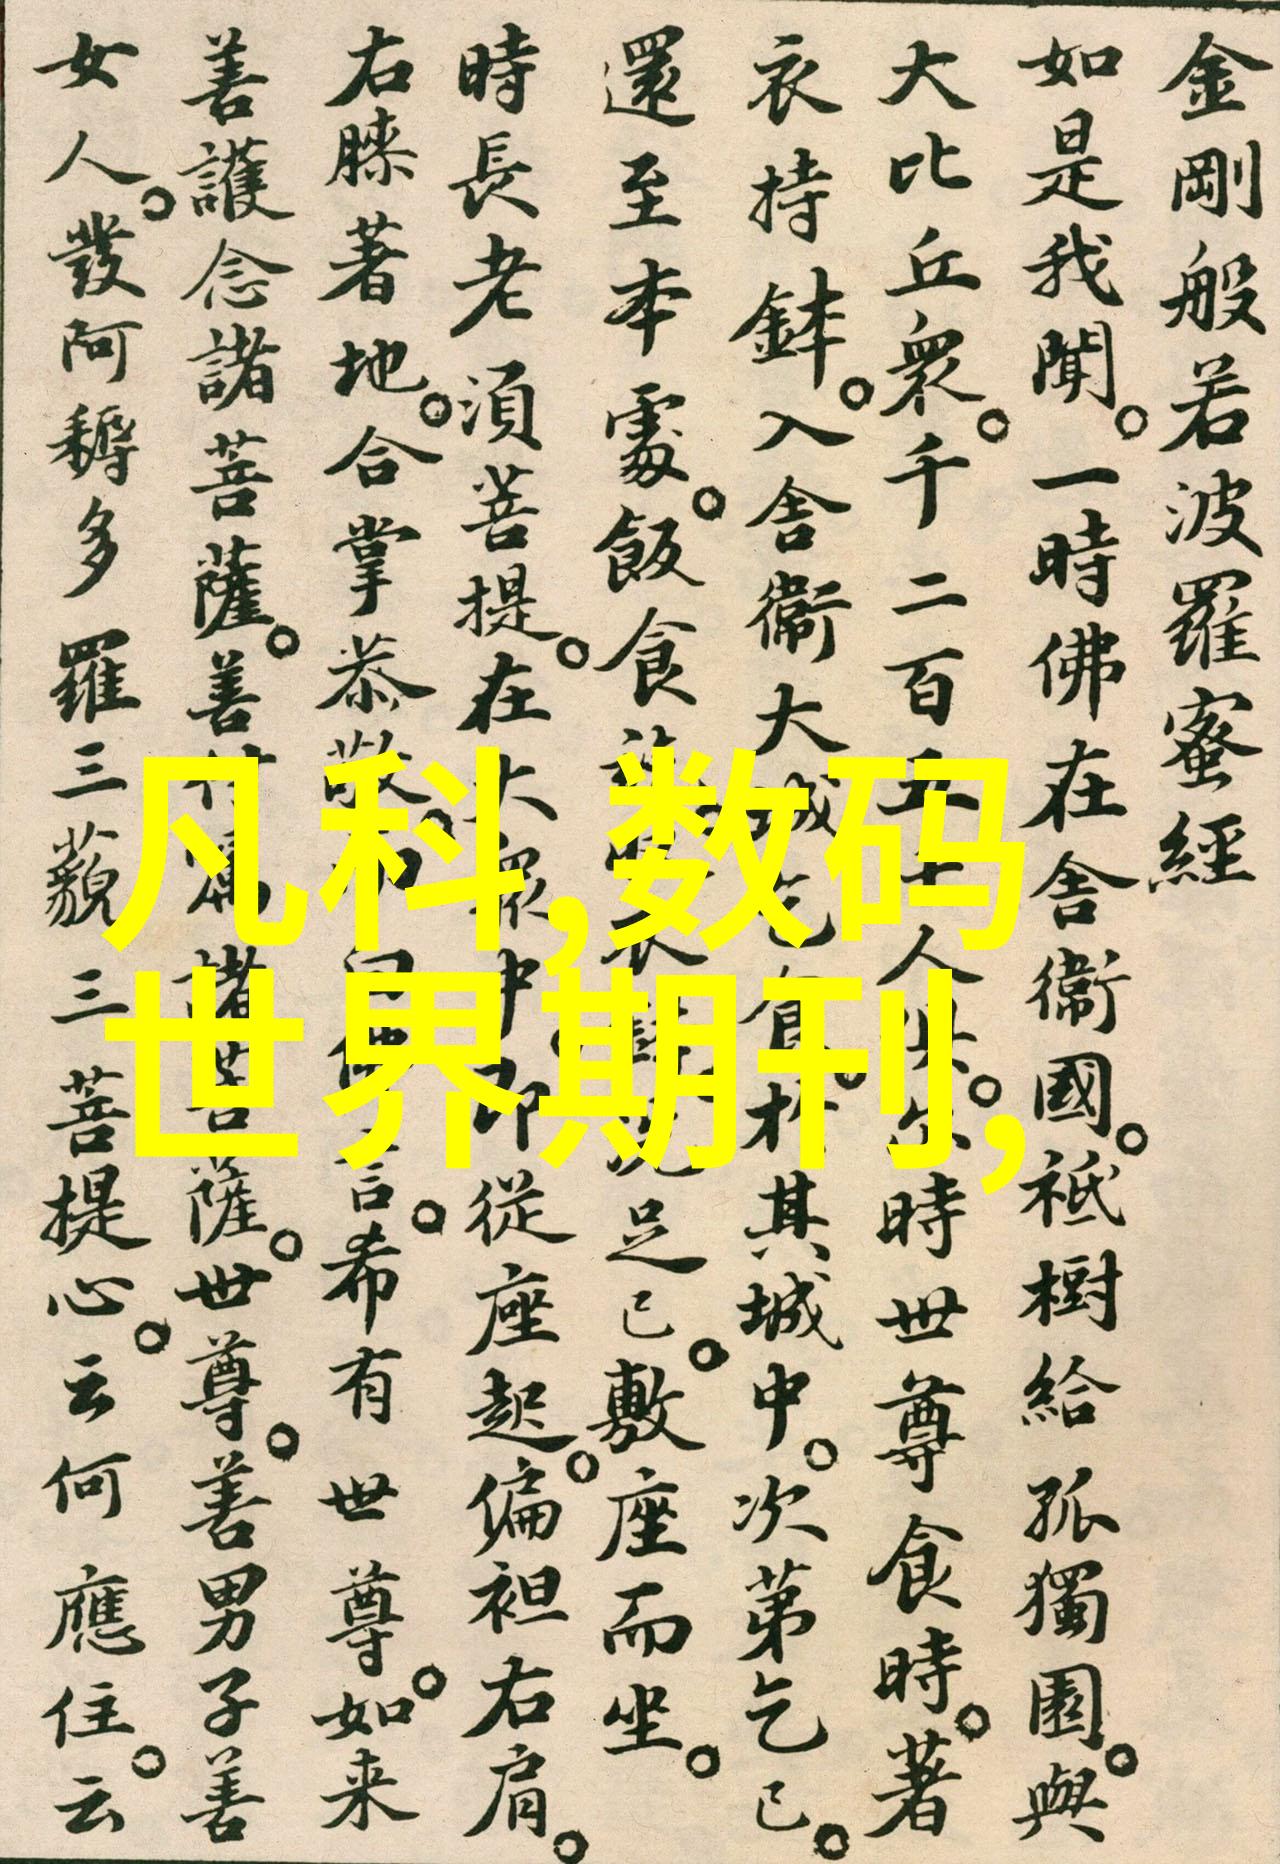 金剛般若波羅蜜經
如是我聞。一時佛在舍衞國。祇樹給孤獨園。與
大比丘衆。千二百五十人俱。尒時世尊食時。著
衣持鉢。入舍衞大城乞食。於其城中。次第乞已。
還至本處。飯食 足已。敷座而坐。
時長老須菩提。在大衆中。即從座起。偏袒右肩。
右膝著地。合掌恭敬。而 言。希有世尊。如来
善護念諸菩薩。善付囑諸菩薩。世尊。善男子善
女人。發阿耨多羅三藐三菩提心。云何應住。云
凡科,数码
世界期刊,